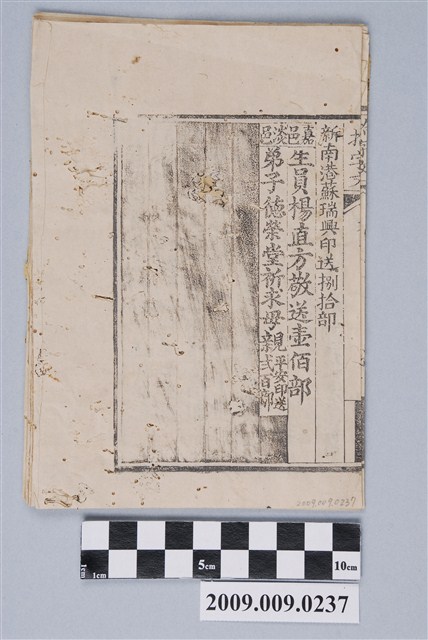 新南港蘇瑞興印送捌拾部
嘉邑生員楊直方敬送壹佰部
淡邑弟子德榮堂祈求母親平安印送弍百部
2009.009.0237
1cm
5cm
10cm
2009.009.0237